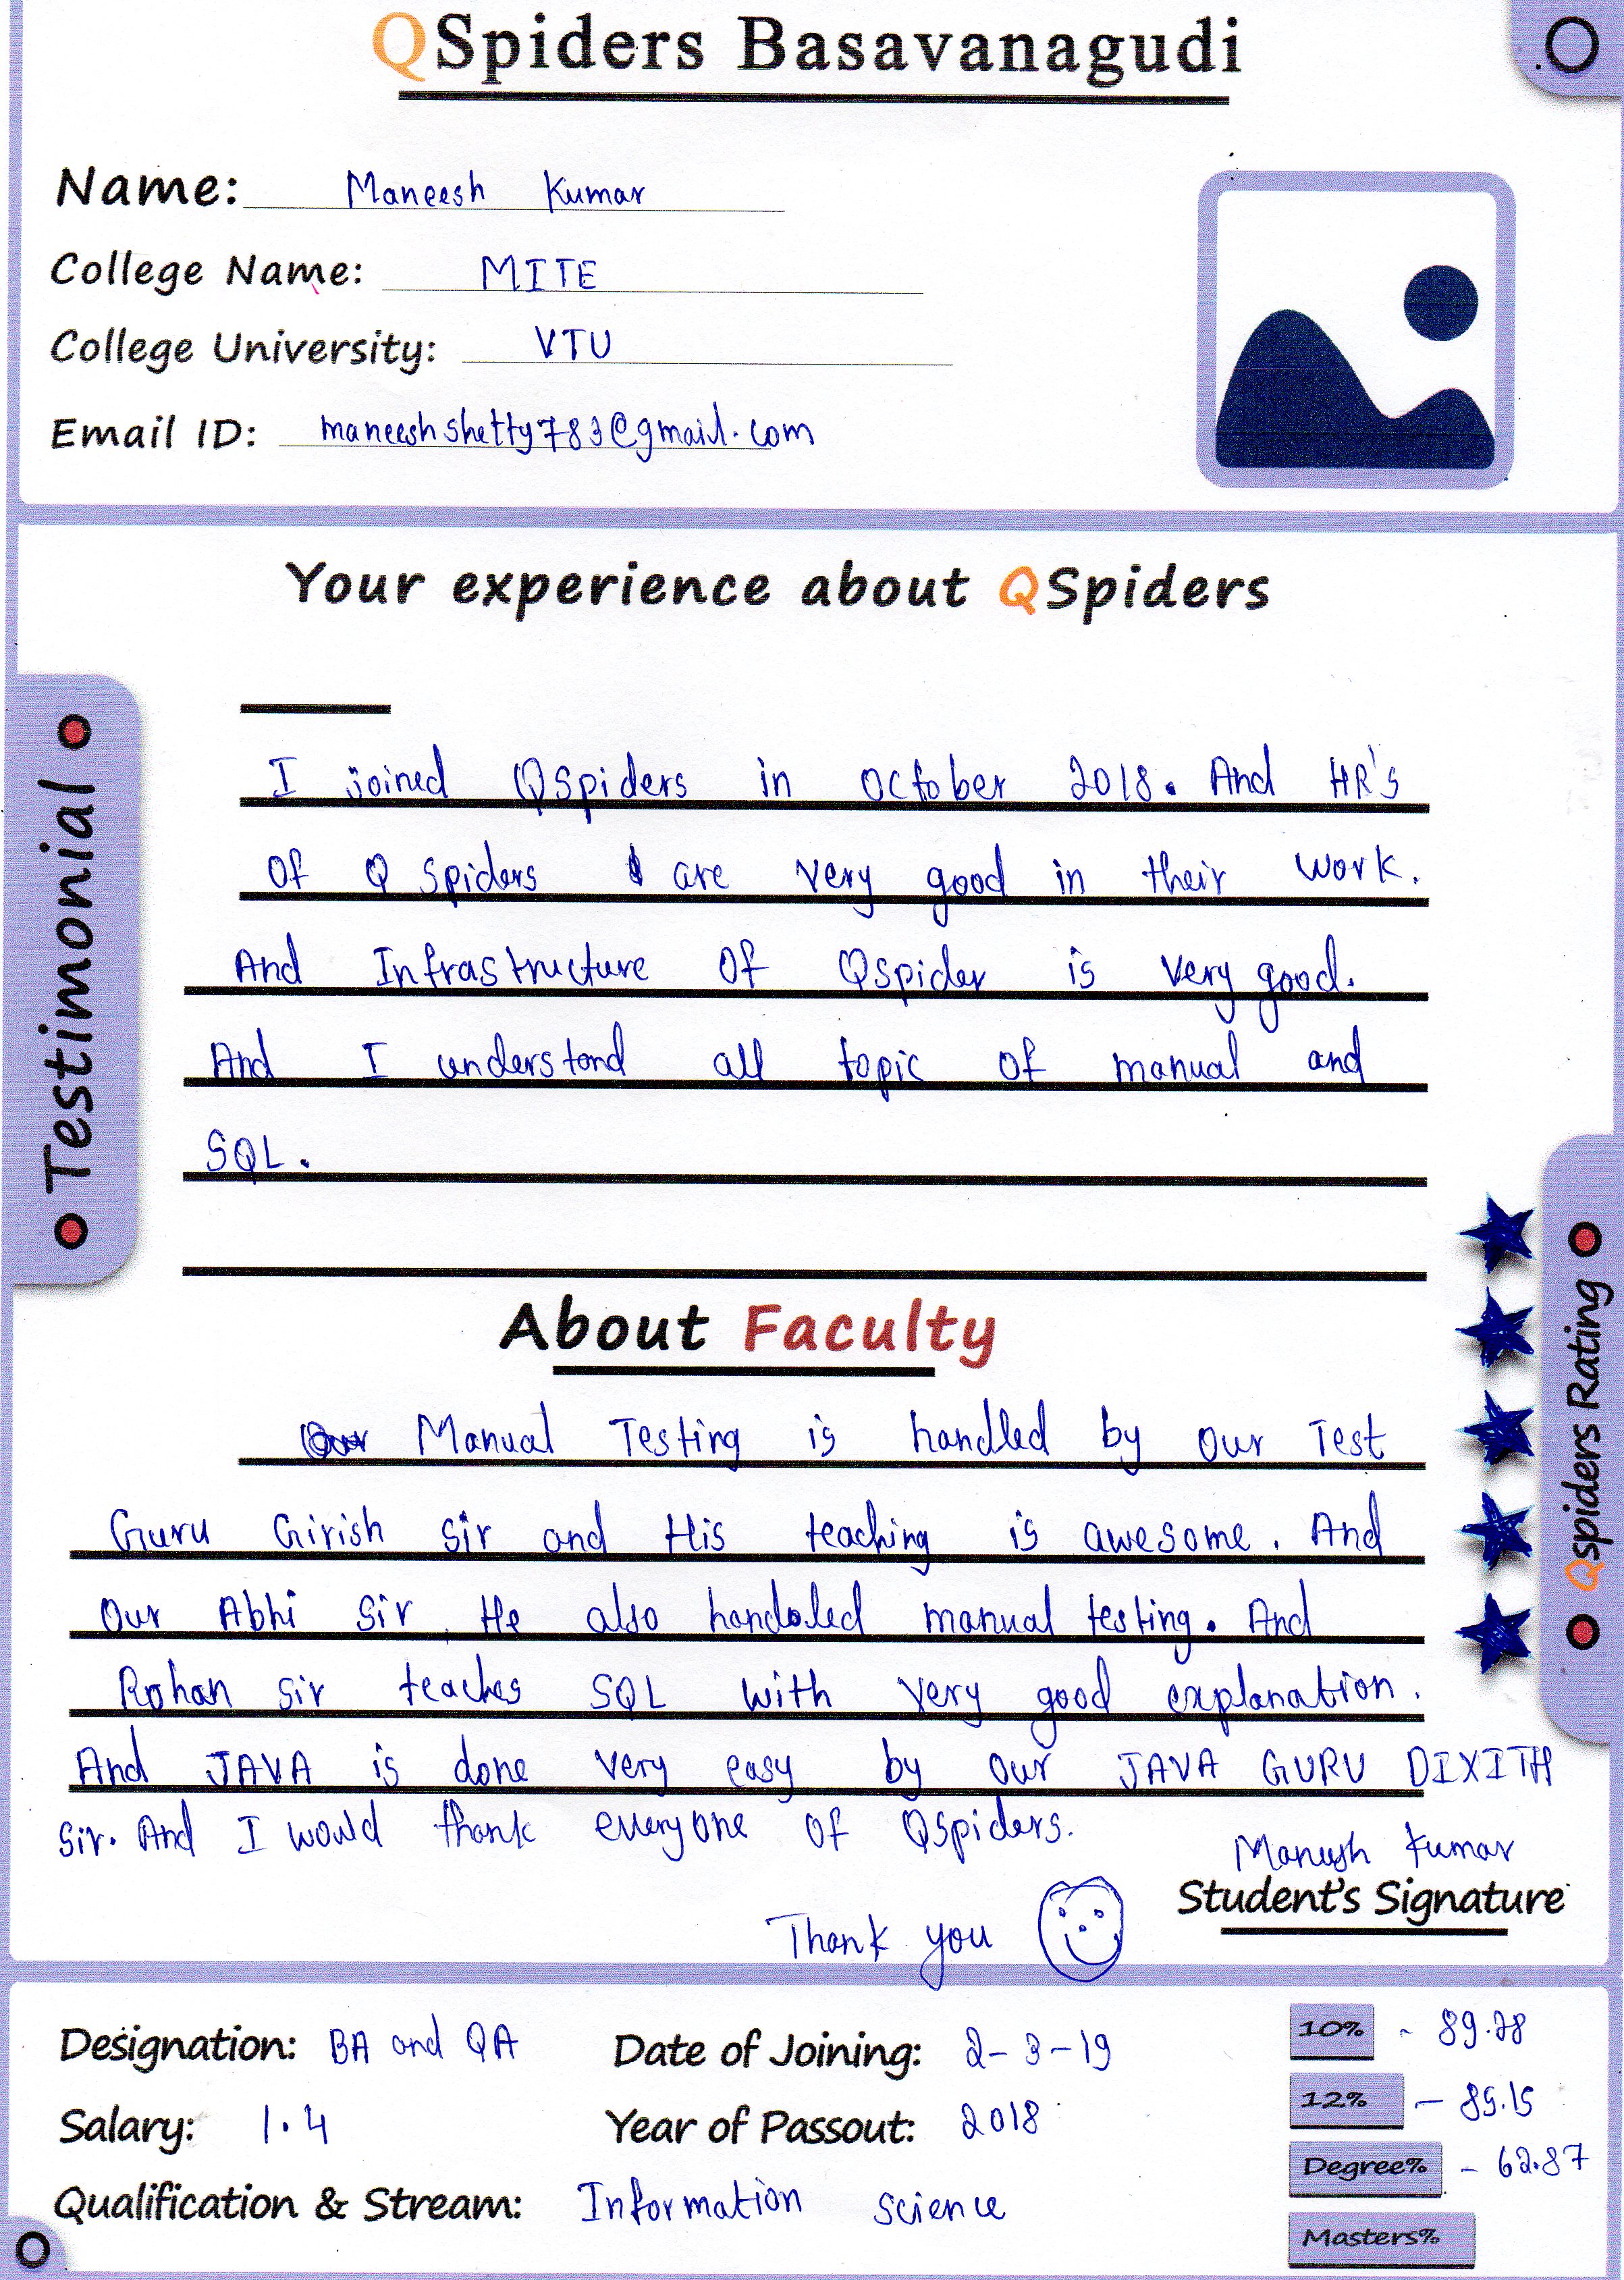 QSpiders Basavanagudi
Name: Maneesh Kumar
College Name: MITE
College University: VTU
Email ID: maneeshshetty783@gmail.com
Your experience about QSpiders
Testimonial
I joined QSpiders in October 2018. And HR's
Of Q Spiders are very good in their work.
And Infrastructure Of Qspider is very good.
And I understand all topic of manual and
SQL.
Qspiders Rating
About Faculty
Manual Testing is handled by our Test
Guru Girish sir and His teaching is awesome. And
Our Abhi Sir. He also handled manual testing. And
Rohan sir teaches SQL with very good explanation.
And JAVA is done very easy by our JAVA GURU DIXITH
Sir. And I would thank everyone of QSpiders.
Maneesh Kumar
Student's Signature
Thank you
Designation: BA and QA
Date of Joining: 2-3-19
10% - 89.28
Salary: 1.4
Year of Passout: 2018
12% - 85.15
Degree% - 62.87
Qualification & Stream: Information science
Masters%